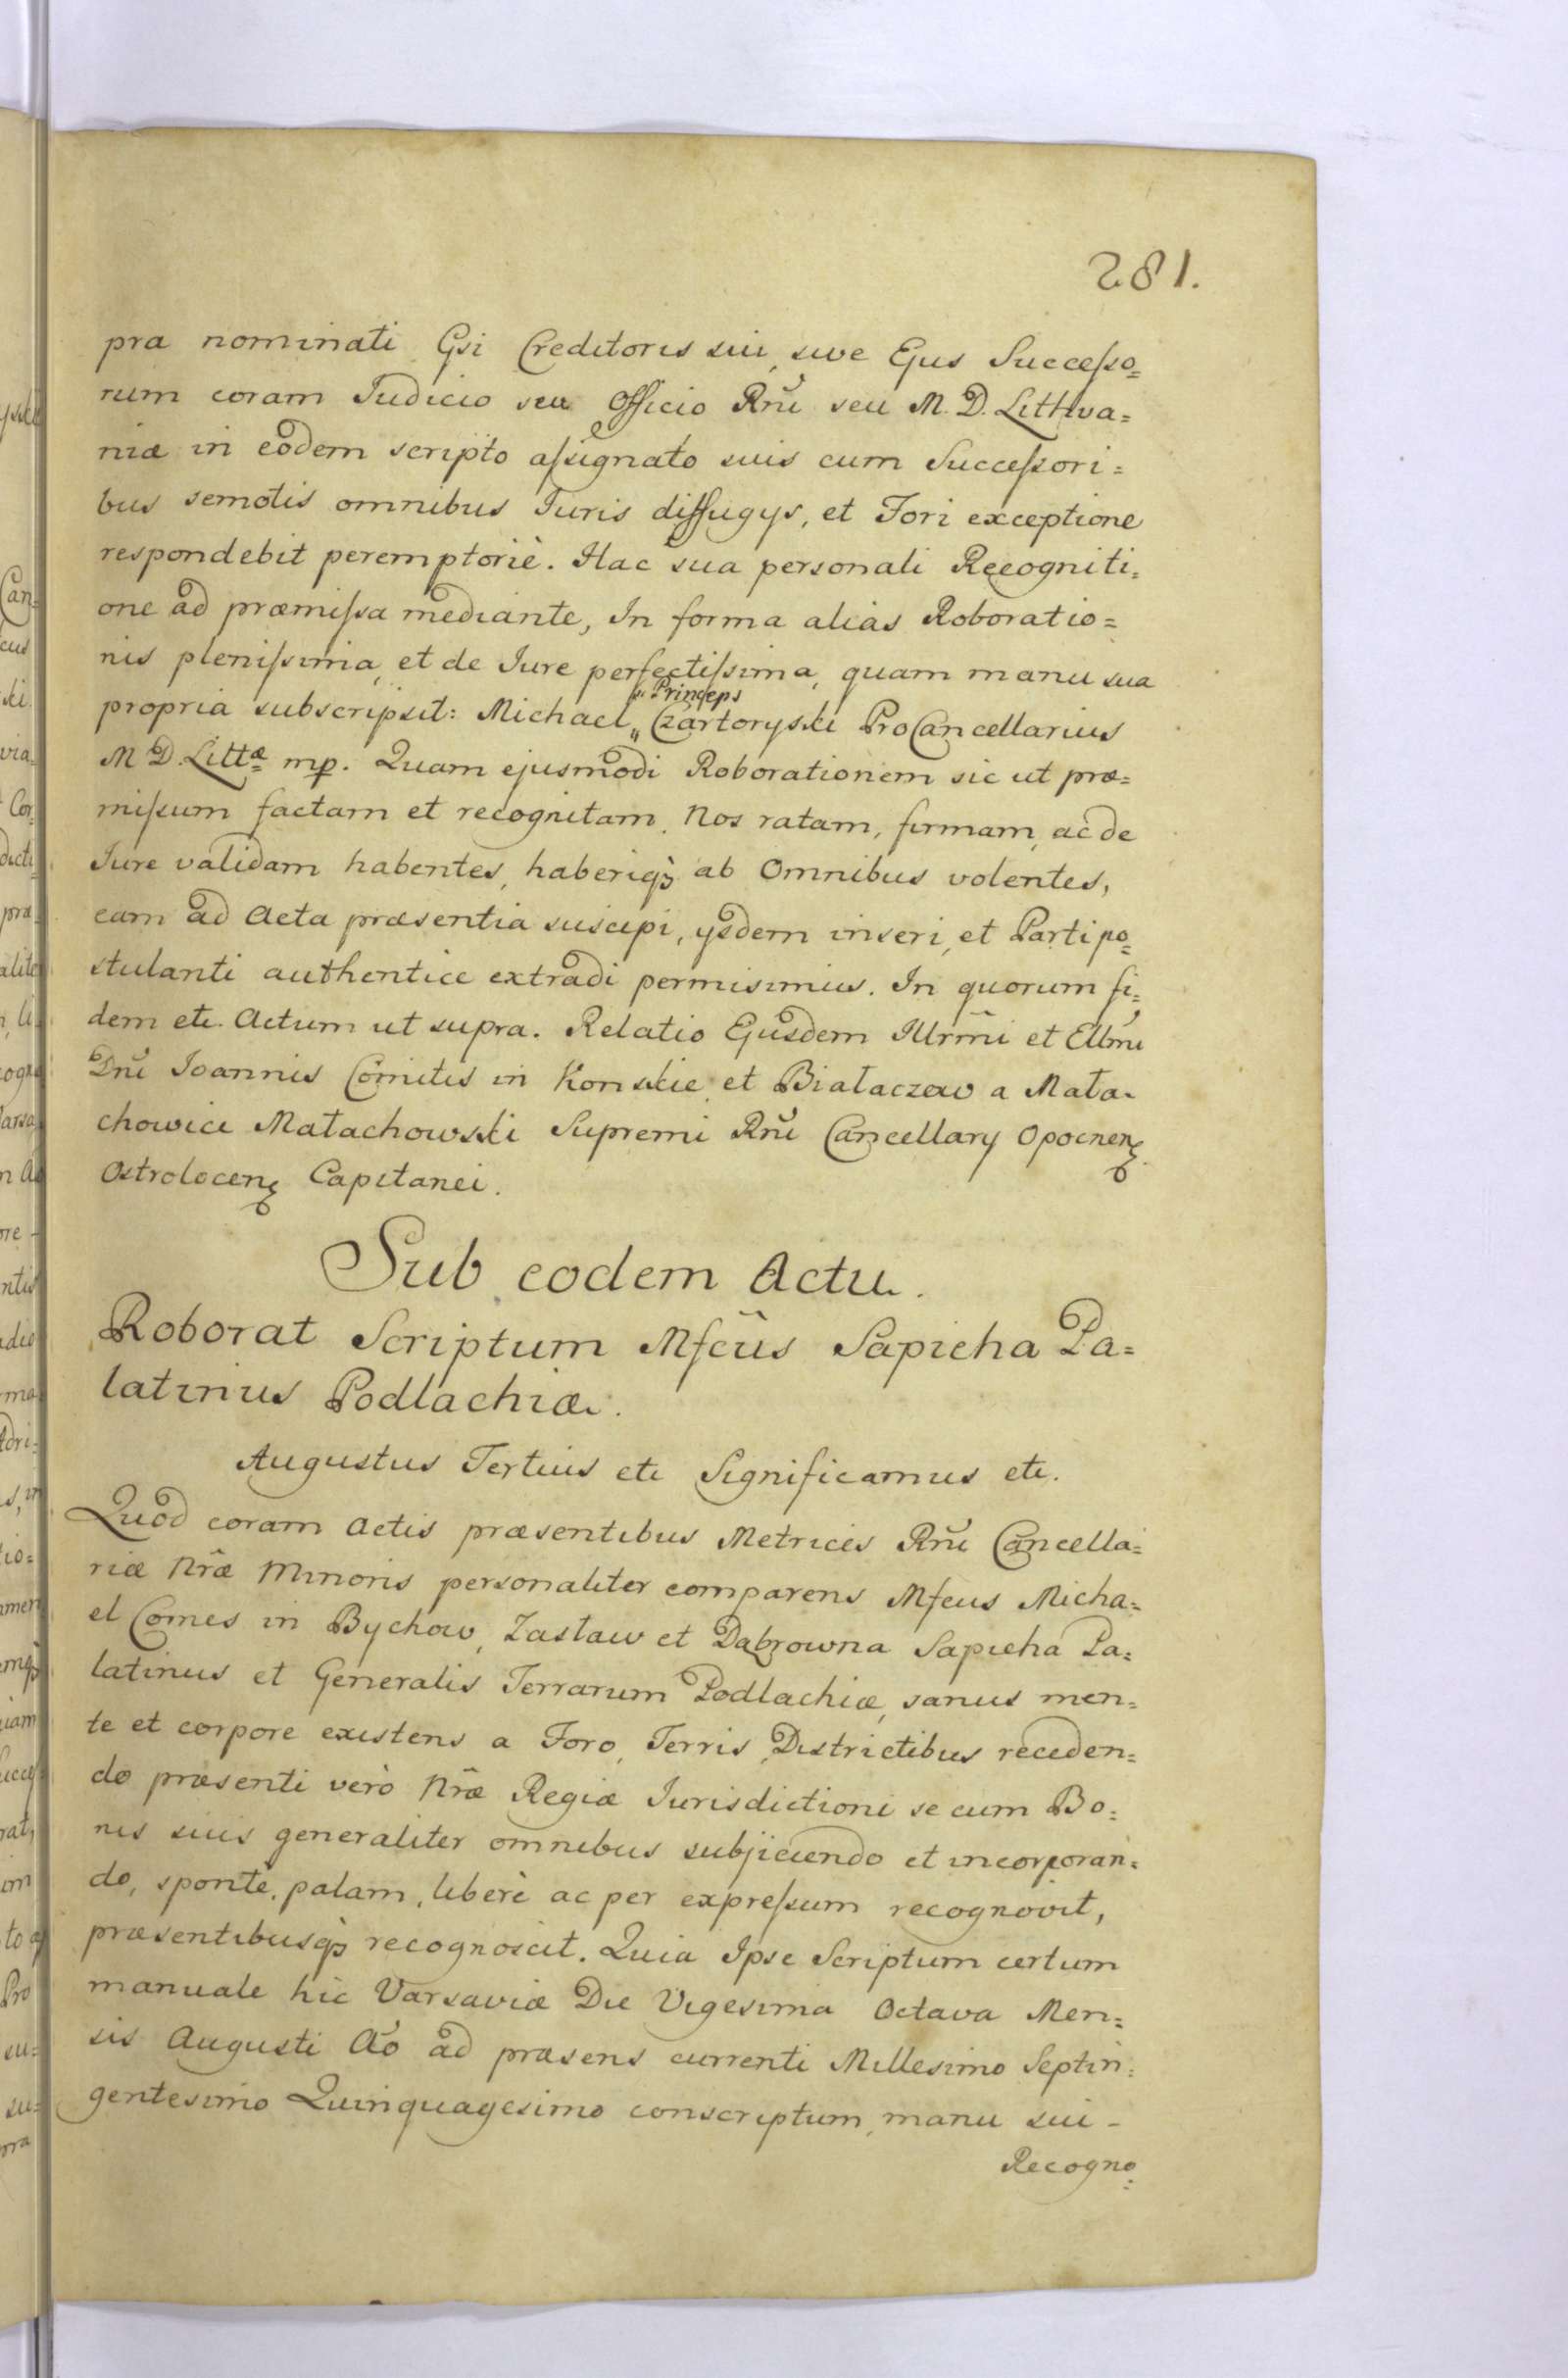 281.
pra nominati Gsi Creditoris sui, sive Ejus Successo=
rum coram Judicio seu Officio Rñi seu M. D. Lithva=
niæ in eodem scripto assignato suis cum Successori=
bus semotis omnibus Juris diffugys, et Fori exceptione
respondebit peremptoriè. Hac sua personali Recogniti=
one ad præmissa mediante, In forma alias Roboratio=
nis plenissima, et de Jure perfectissima, quam manu sua
propria subscripsit: Michael „ Princeps „ Czartoryski ProCancellarius
M D. Littæ mp. Quam ejusmodi Roborationem sic ut præ=
missum factam et recognitam, Nos ratam, firmam, ac de
Jure validam habentes, haberiqꝫ ab Omnibus volentes,
eam ad Acta præsentia suscipi, ysdem inseri, et Parti po=
stulanti authentice extradi permisimus. In quorum fi=
dem etc. Actum ut supra. Relatio Ejusdem Illrm̃i et Ellm̃i
Dñi Joannis Comitis in Konskie et Białaczew a Mała=
chowice Małachowski Supremi Rñi Cancellary Opocnenꝫ
Ostrolecenꝫ Capitanei.
Sub eodem Actu.
Roborat Scriptum Mfcũs Sapieha Pa=
latinus Podlachiæ.
Augustus Tertius etc Significamus etc.
Quod coram Actis præsentibus Metrices Rñi Cancella=
riæ Nr̃æ Minoris personaliter comparens Mfcus Micha=
el Comes in Bychow, Zasław et Dąbrowna Sapieha Pa=
latinus et Generalis Terrarum Podlachiæ, sanus men=
te et corpore existens a Foro, Terris, Districtibus receden=
do præsenti verò Nr̃æ Regiæ Jurisdictioni se cum Bo=
nis suis generaliter omnibus subjiciendo et incorporan=
do, spontè, palam, liberè ac per expressum recognovit,
præsentibusqꝫ recognoscit. Quia Ipse Scriptum certum
manuale hic Varsaviæ Die Vigesima Octava Men=
sis Augusti Aõ ad præsens currenti Millesimo Septin=
gentesimo Quinquagesimo conscriptum, manu sui -
Recogno=